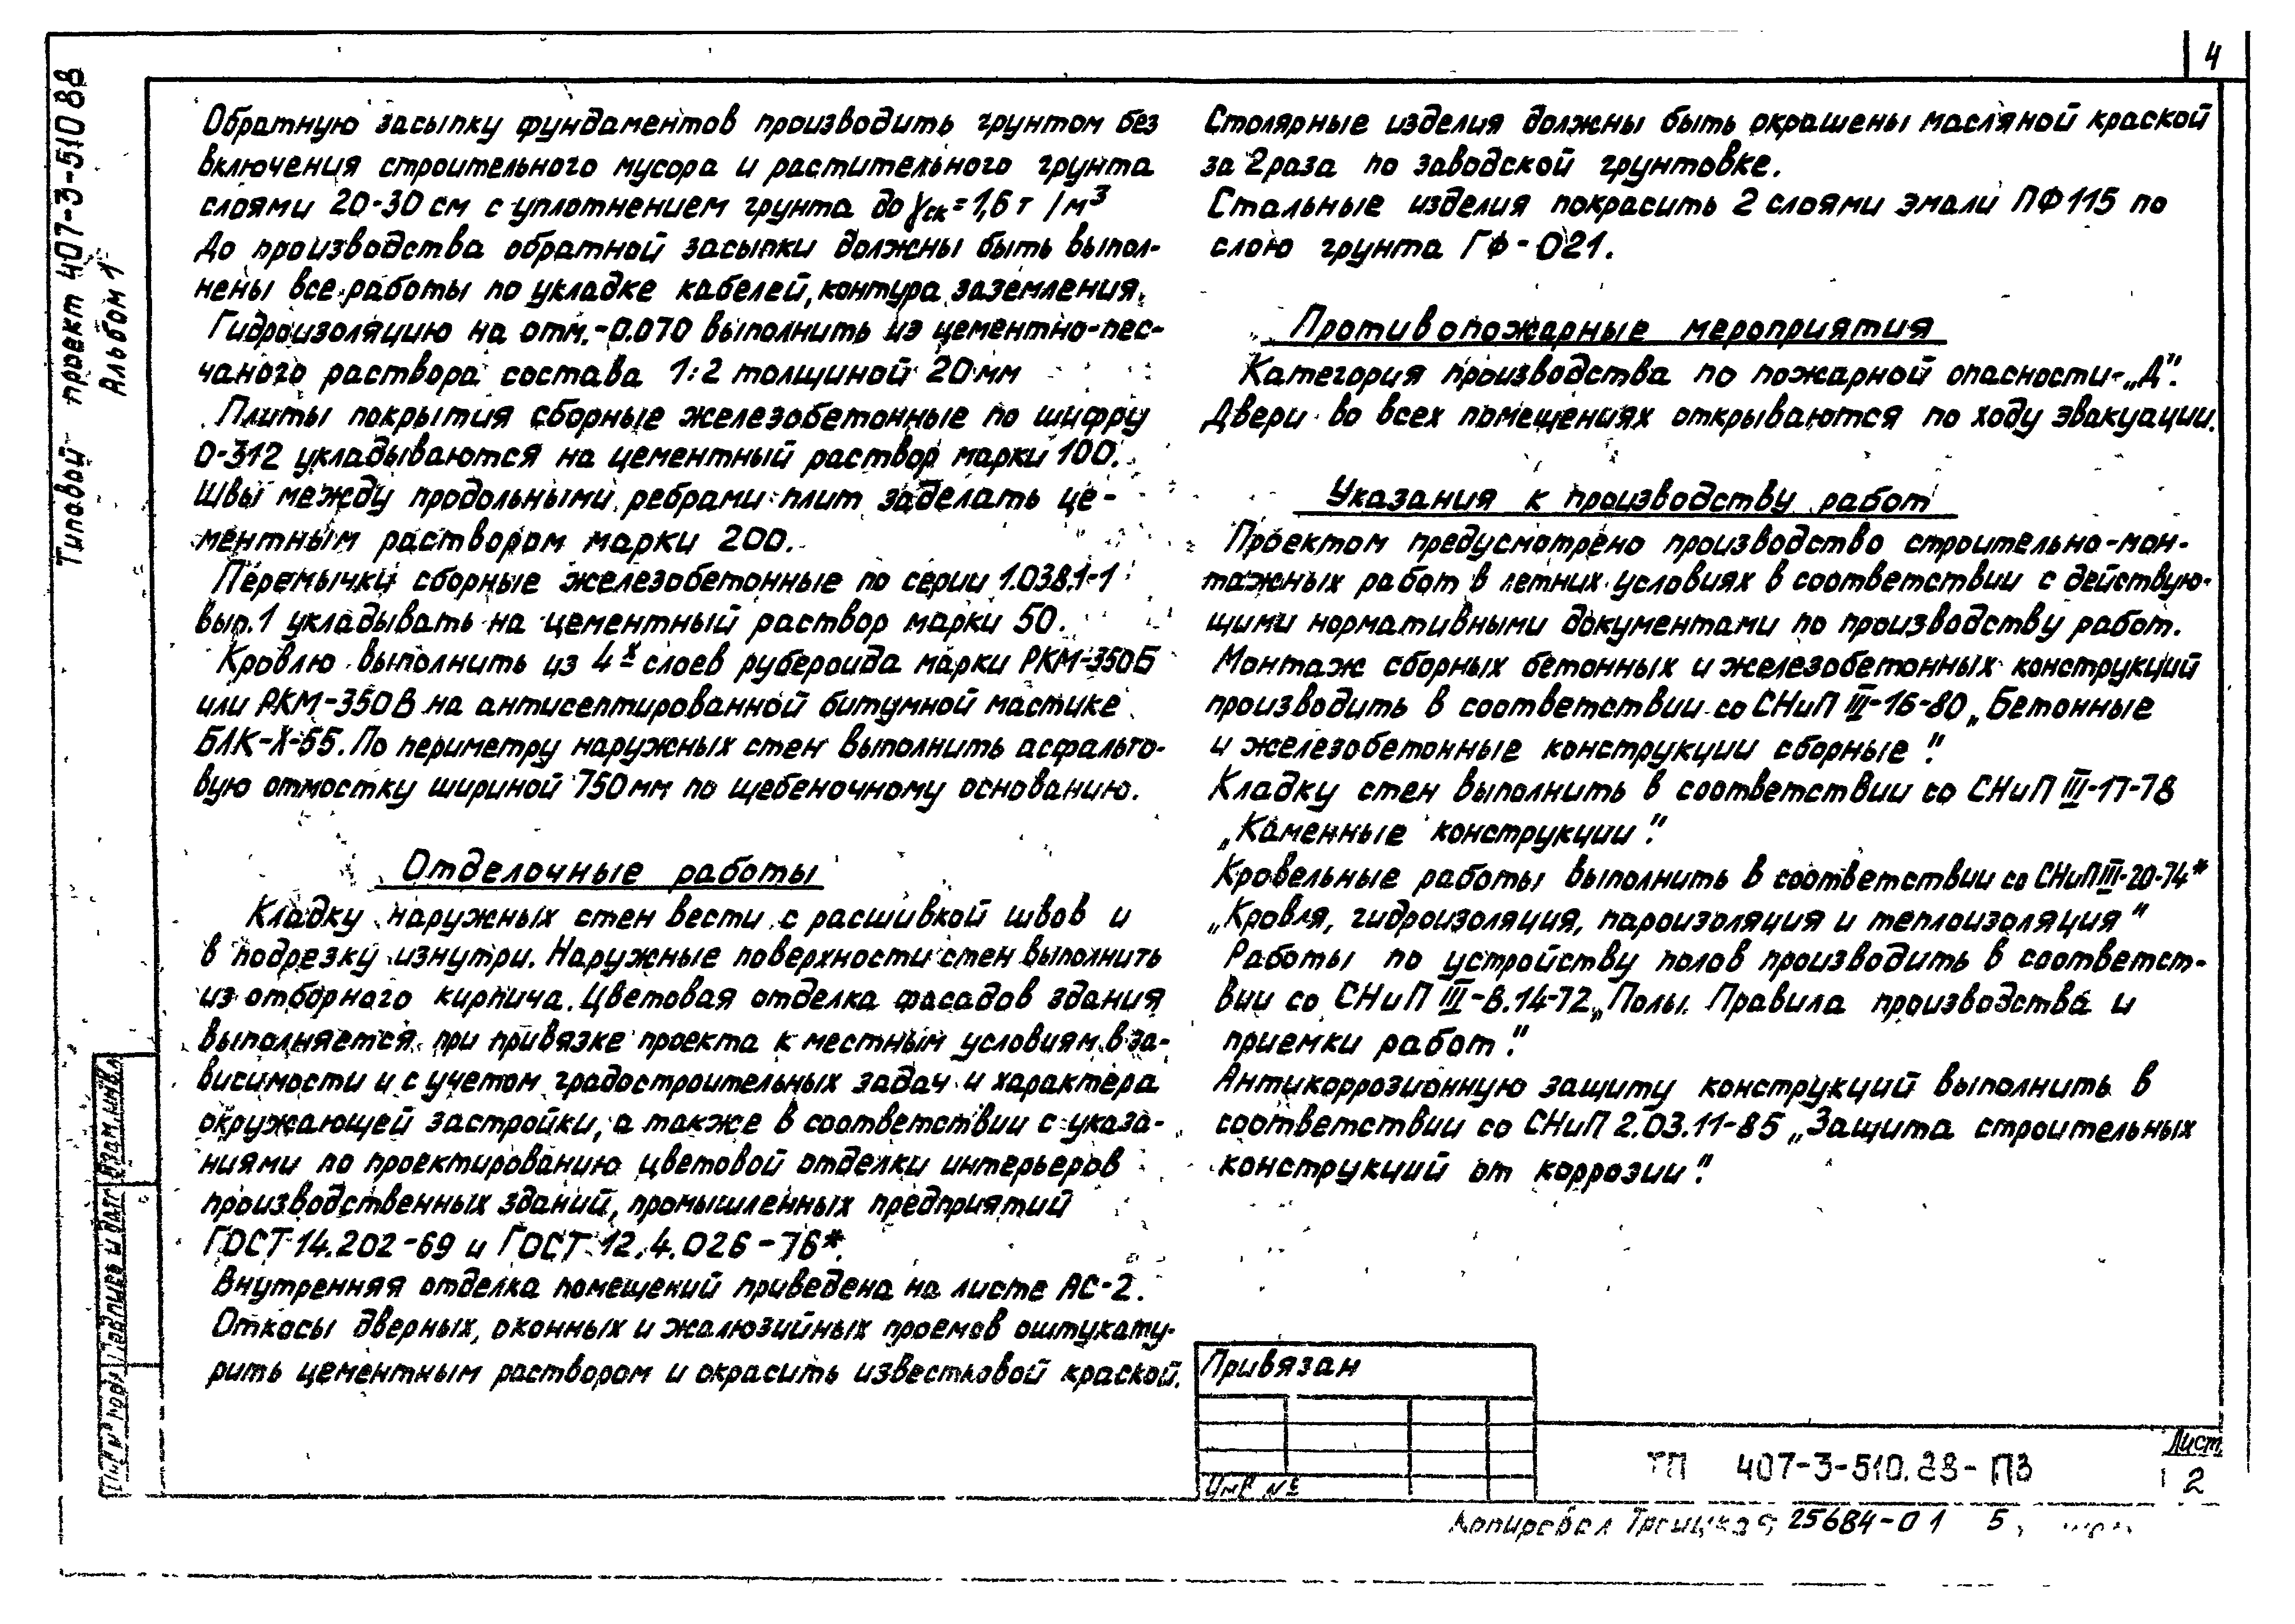 4
Типовой проект 407-3-510 88
Альбом 1
Обратную засыпку фундаментов производить грунтом без
включения строительного мусора и растительного грунта
слоями 20-30 см с уплотнением грунта до γск = 1,6 т /м³
До производства обратной засыпки должны быть выпол-
нены все работы по укладке кабелей, контура заземления.
Гидроизоляцию на отм.-0.070 выполнить из цементно-пес-
чаного раствора состава 1:2 толщиной 20 мм
Плиты покрытия сборные железобетонные по шифру
0-312 укладываются на цементный раствор марки 100.
Швы между продольными ребрами плит заделать це-
ментным раствором марки 200.
Перемычки сборные железобетонные по серии 1.038.1-1
вып.1 укладывать на цементный раствор марки 50.
Кровлю выполнить из 4х слоев рубероида марки РКМ-350Б
или РКМ-350В на антисептированной битумной мастике
БЛК-Х-55. По периметру наружных стен выполнить асфальто-
вую отмостку шириной 750 мм по щебеночному основанию.
Отделочные работы
Кладку наружных стен вести с расшивкой швов и
в подрезку изнутри. Наружные поверхности стен выполнить
из отборного кирпича. Цветовая отделка фасадов здания
выполняется при привязке проекта к местным условиям в за-
висимости и с учетом градостроительных задач и характера
окружающей застройки, а также в соответствии с указа-
ниями по проектированию цветовой отделки интерьеров
производственных зданий, промышленных предприятий
ГОСТ 14.202-69 и ГОСТ 12.4.026-76*.
Внутренняя отделка помещений приведена на листе АС-2.
Откосы дверных, оконных и жалюзийных проемов оштукату-
рить цементным раствором и окрасить известковой краской.
Столярные изделия должны быть окрашены масляной краской
за 2 раза по заводской грунтовке.
Стальные изделия покрасить 2 слоями эмали ПФ 115 по
слою грунта ГФ-021.
Противопожарные мероприятия
Категория производства по пожарной опасности-„Д".
Двери во всех помещениях открываются по ходу эвакуации.
Указания к производству работ
Проектом предусмотрено производство строительно-мон-
тажных работ в летних условиях в соответствии с действую-
щими нормативными документами по производству работ.
Монтаж сборных бетонных и железобетонных конструкций
производить в соответствии со СНиП III-16-80 „Бетонные
и железобетонные конструкции сборные".
Кладку стен выполнить в соответствии со СНиП III-17-78
„Каменные конструкции".
Кровельные работы выполнить в соответствии со СНиП III-20-74*
„Кровля, гидроизоляция, пароизоляция и теплоизоляция"
Работы по устройству полов производить в соответст-
вии со СНиП III-В.14-72 „Полы. Правила производства и
приемки работ".
Антикоррозионную защиту конструкций выполнить в
соответствии со СНиП 2.03.11-85 „Защита строительных
конструкций от коррозии".
Взам.инв.
Подпись и дата
Инв № подл
Привязан
Инв №
ТП 407-3-510.88-ПЗ
Лист
2
Копировал Троицкая 25684-01 5